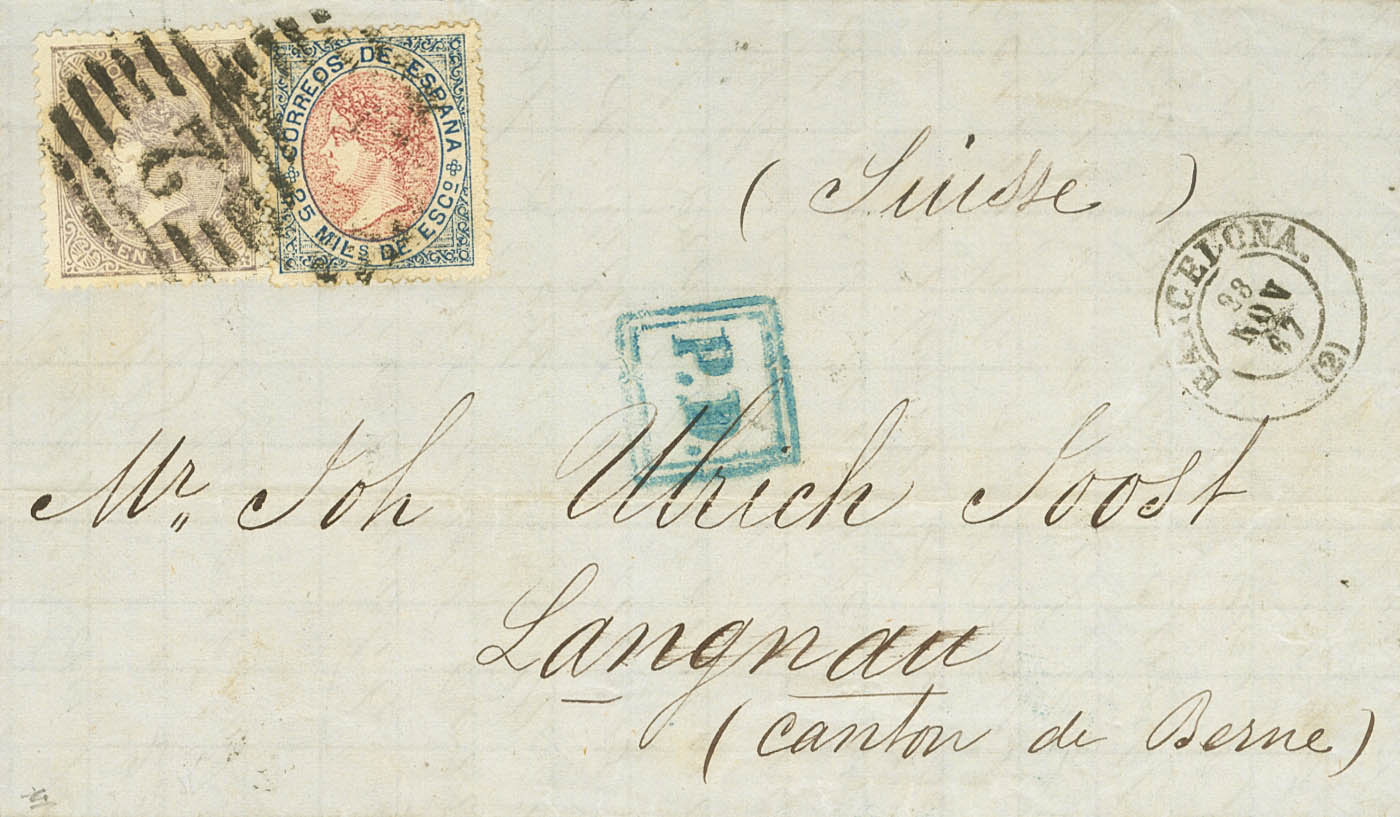 CORREOS DE ESPAÑA
25 MILS DE ESCO
2
( Suisse )
BARCELONA.
28
NOV
67
(2)
P.D.
Mr,, Joh Ulrich Joost
Langnau
(canton de Berne)